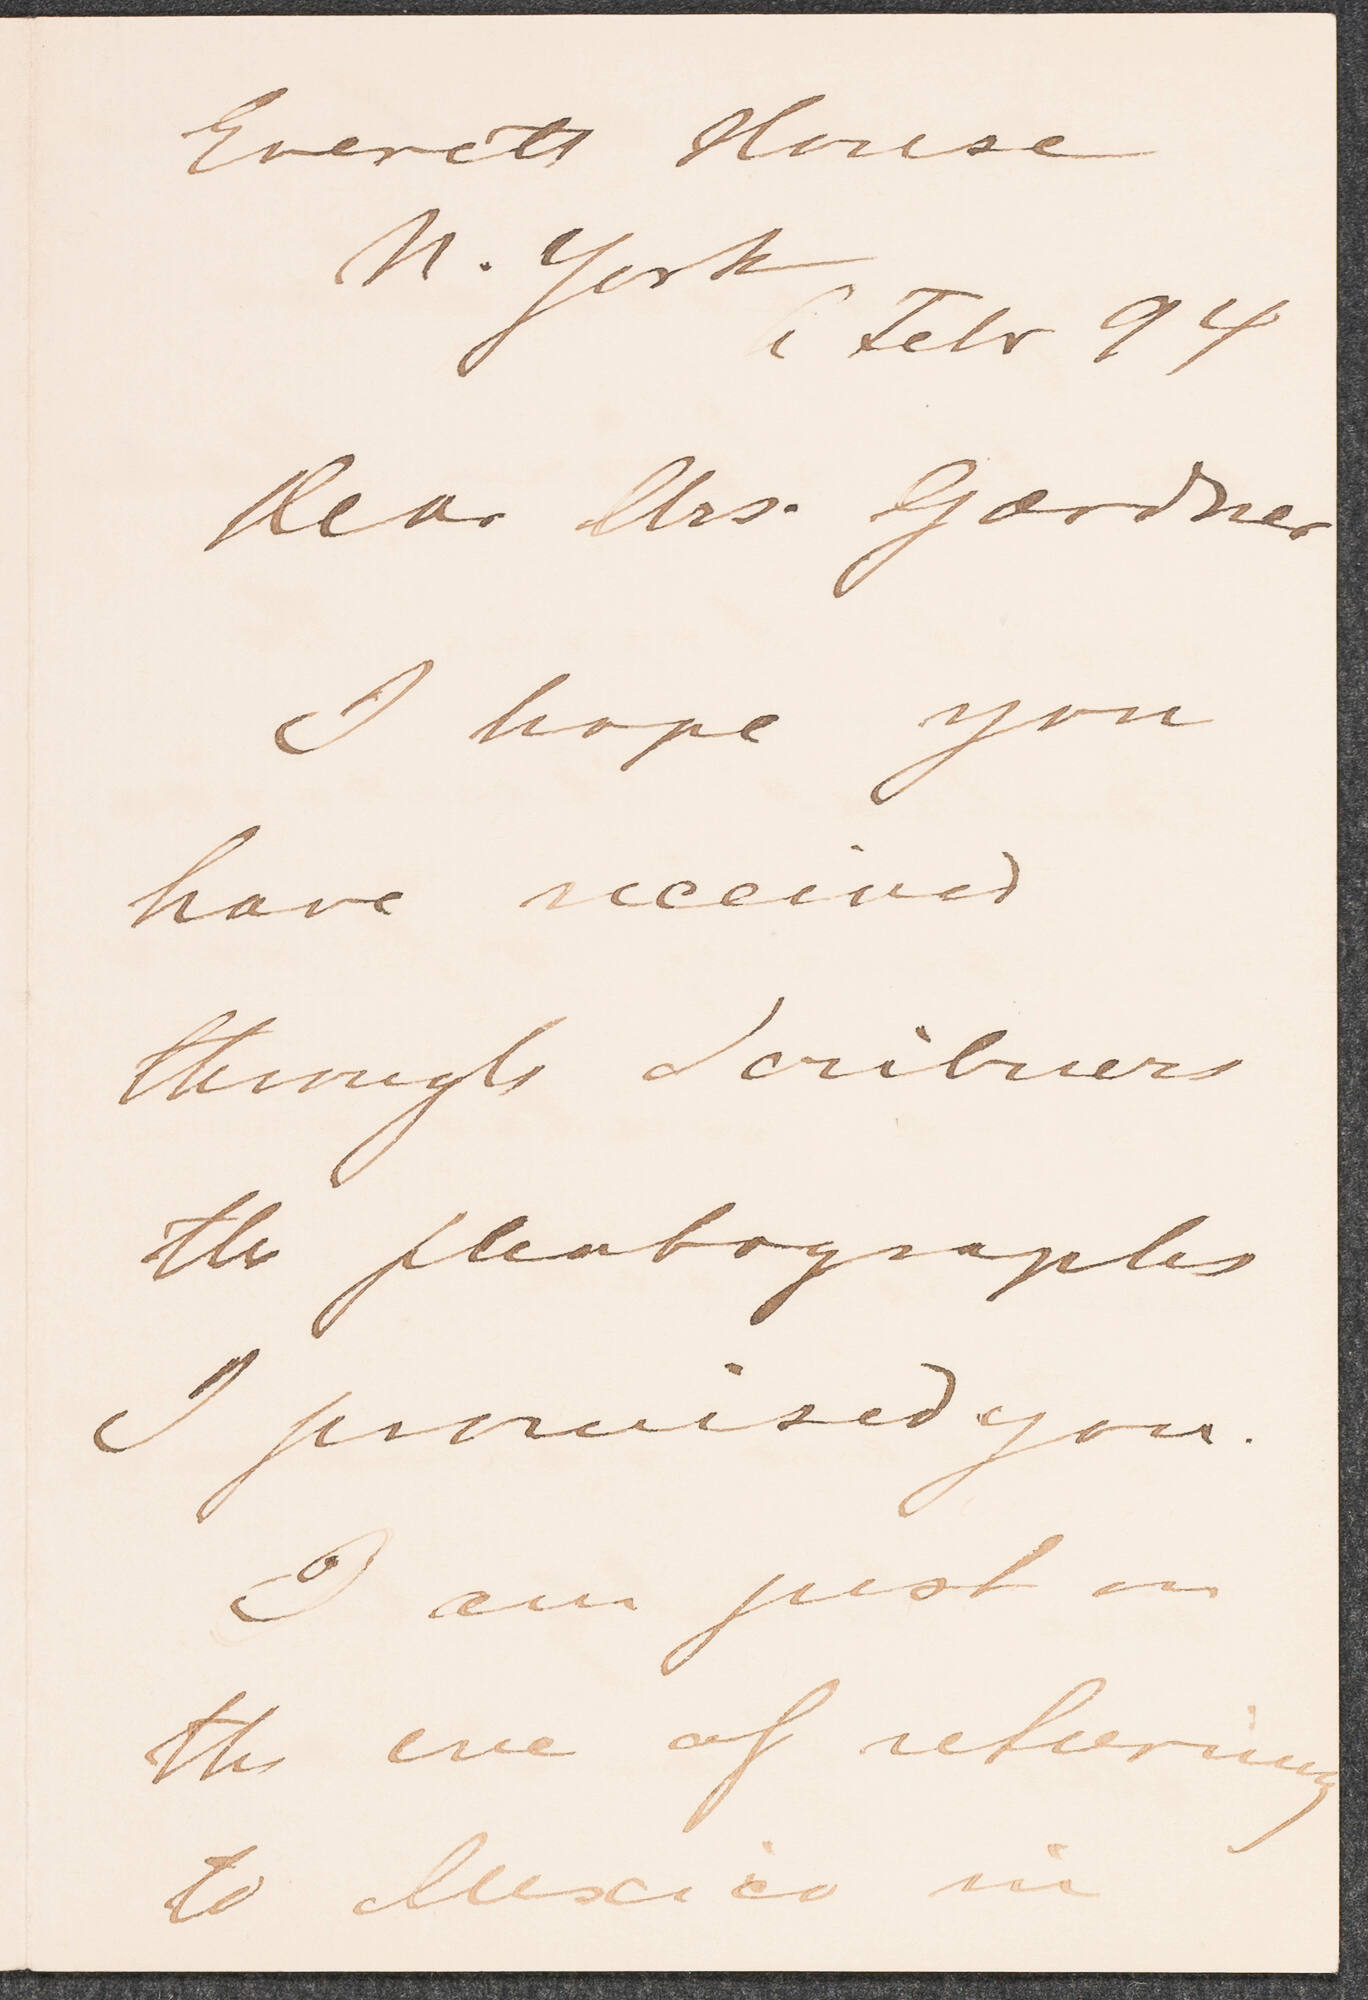 Everett House
N. York
6 Febr 94
Dear Mrs. Gardner
I hope you
have received
through Scribners
the photographs
I promised you.
I am just on
the eve of returning
to Mexico in